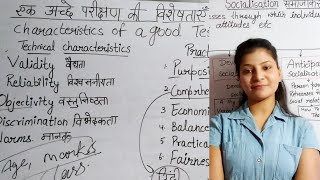 एक अच्छे परीक्षण की विशेषताएँ
Characteristics of a good Tes
Technical characteristics
Validity वैधता
Reliability विश्वसनीयता
Objectivity वस्तुनिष्ठता
Discrimination विभेदकता
Norms मानक
Age, marks
Prac
Purpos
Compreh
Economi
Balance
Practica
Fairness
हिंदी
Socialisation समाजीकर
sses through which individu
attitudes etc
Antipa
Socialisa